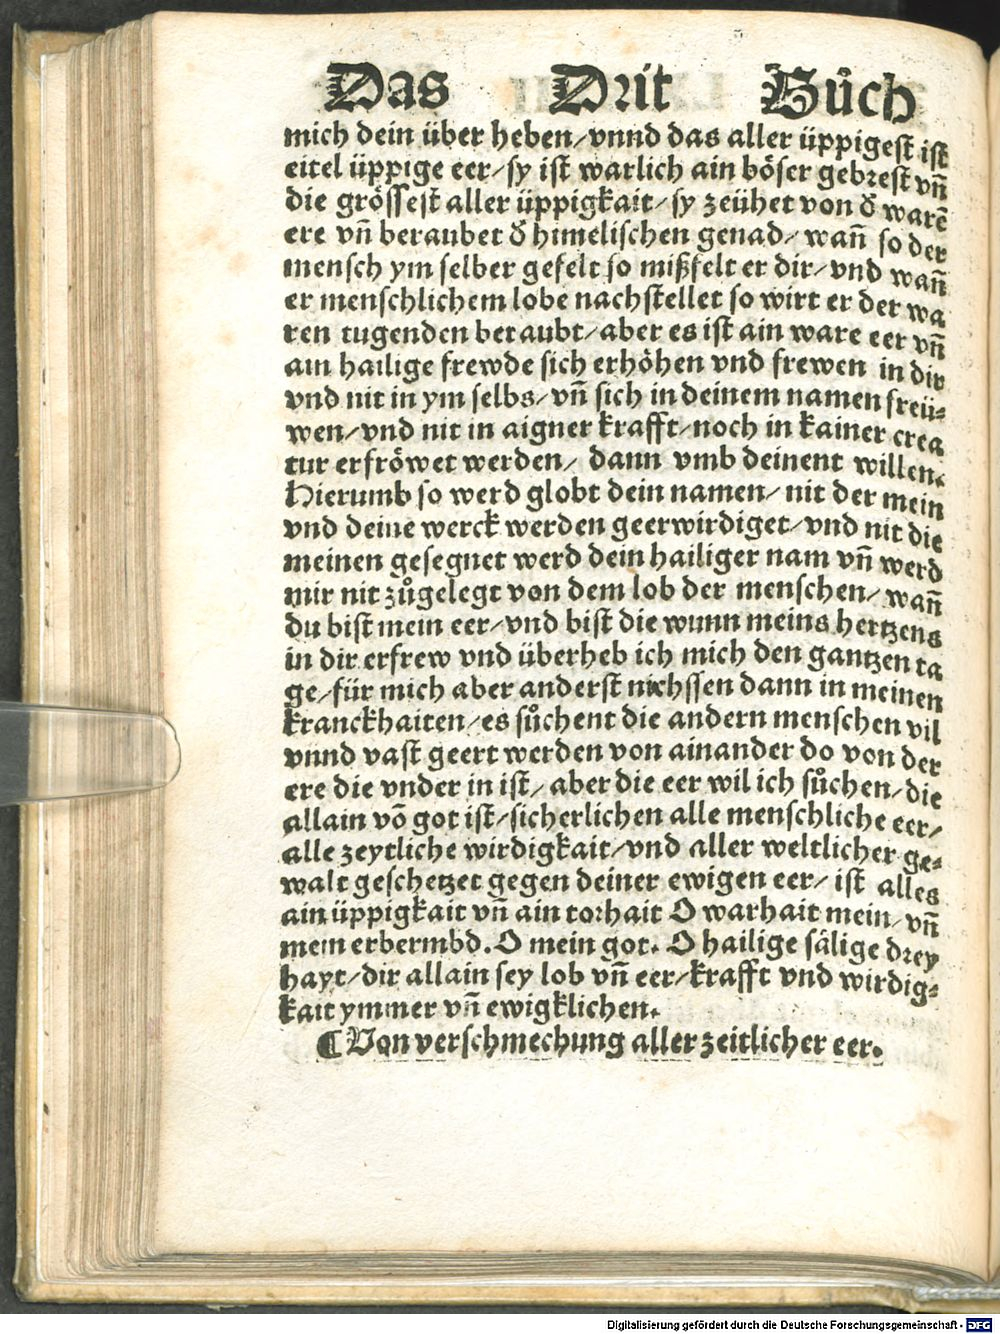 Das Drit Bůch
mich dein über heben/vnnd das aller üppigest ist
eitel üppige eer/sy ist warlich ain böser gebrest vñ
die grössest aller üppigkait/sy zeühet von d̕ warẽ
ere vñ beraubet d̕ himelischen genad/wañ so der
mensch ym selber gefelt so mißfelt er dir/vnd wañ
er menschlichem lobe nachstellet so wirt er der wa
ren tugenden beraubt/aber es ist ain ware eer vñ
ain hailige frewde sich erhöhen vnd frewen in dir
vnd nit in ym selbs/vñ sich in deinem namen freü-
wen/vnd nit in aigner krafft/noch in kainer crea
tur erfröwet werden/ dann vmb deinent willen.
Hierumb so werd globt dein namen/nit der mein
vnd deine werck werden geerwirdiget/vnd nit die
meinen gesegnet werd dein hailiger nam vñ werd
mir nit zůgelegt von dem lob der menschen/wañ
du bist mein eer/vnd bist die wunn meins hertzens
in dir erfrew vnd überheb ich mich den gantzen ta
ge/für mich aber anderst nichssen dann in meinen
kranckhaiten/es sůchent die andern menschen vil
vnnd vast geert werden von ainander do von der
ere die vnder in ist/aber die eer wil ich sůchen/die
allain võ got ist/sicherlichen alle menschliche eer/
alle zeytliche wirdigkait/vnd aller weltlicher ge-
walt geschetzet gegen deiner ewigen eer/ ist alles
ain üppigkait vñ ain torhait O warhait mein/vñ
mein erbermbd. O mein got. O hailige sälige drey
hayt/dir allain sey lob vñ eer/krafft vnd wirdig-
kait ymmer vñ ewigklichen.
¶ Von verschmechung aller zeitlicher eer.
Digitalisierung gefördert durch die Deutsche Forschungsgemeinschaft - DFG